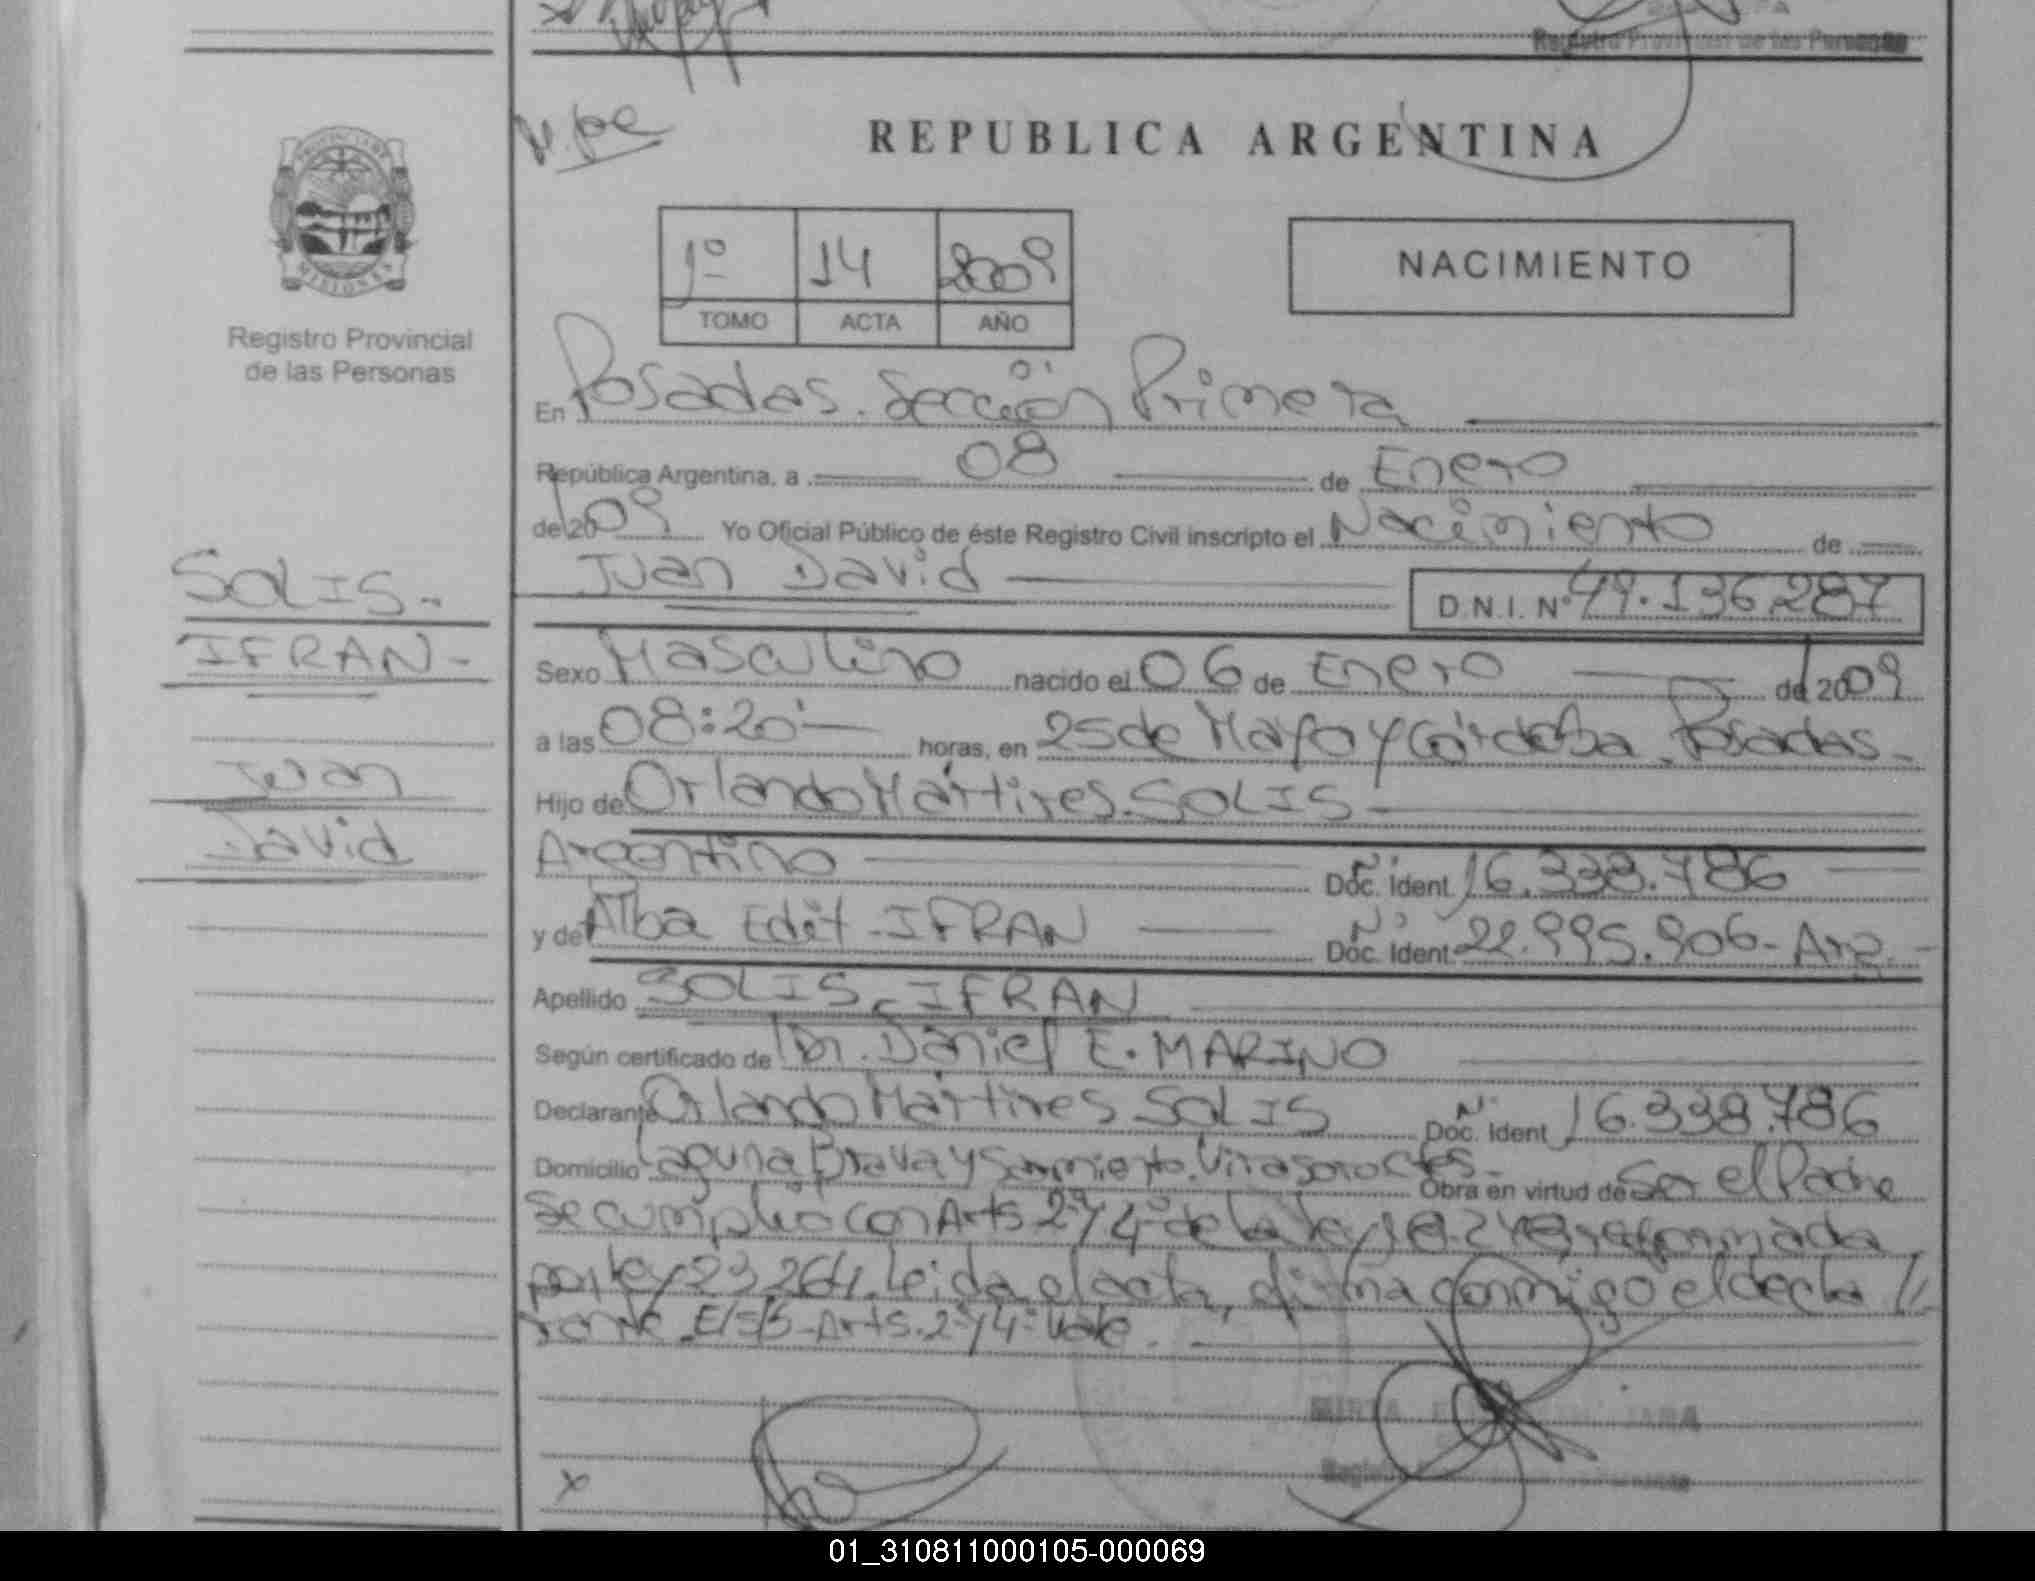 Registro Provincial de las Personas
N. pe
REPUBLICA ARGENTINA
1º 14 2009
TOMO ACTA AÑO
NACIMIENTO
PROVINCIA DE
MISIONES
Registro Provincial
de las Personas
En Posadas. Sección Primera
República Argentina, a 08 de Enero
de 2009 Yo Oficial Público de éste Registro Civil inscripto el Nacimiento de
Juan David D.N.I. Nº 49.136.287
SOLIS.-
IFRAN-
Juan
David
Sexo Masculino nacido el 06 de Enero de 2009
a las 08:20 horas, en 25 de Mayo y Córdoba. Posadas-
Hijo de Orlando Mártires SOLIS-
Argentino Nº Doc. Ident. 16.338.786
y de Alba Edit IFRAN Nº Doc. Ident 22.995.906-Arg.-
Apellido SOLIS IFRAN
Según certificado de Dr. Daniel E. MARINO
Declarante Orlando Mártires SOLIS Nº Doc. Ident 16.338.786
Domicilio Laguna Brava y Sarmiento. Virasoro Ctes.- Obra en virtud de Ser el Padre
Se cumplió con Arts 2º y 4º de la ley 18.248, reformada
por ley 23.264. Leida el acta, firma conmigo el decla //
rante. E/S/S-Arts. 2º y 4º Vale.
x
MIRTA JARA
01_310811000105-000069